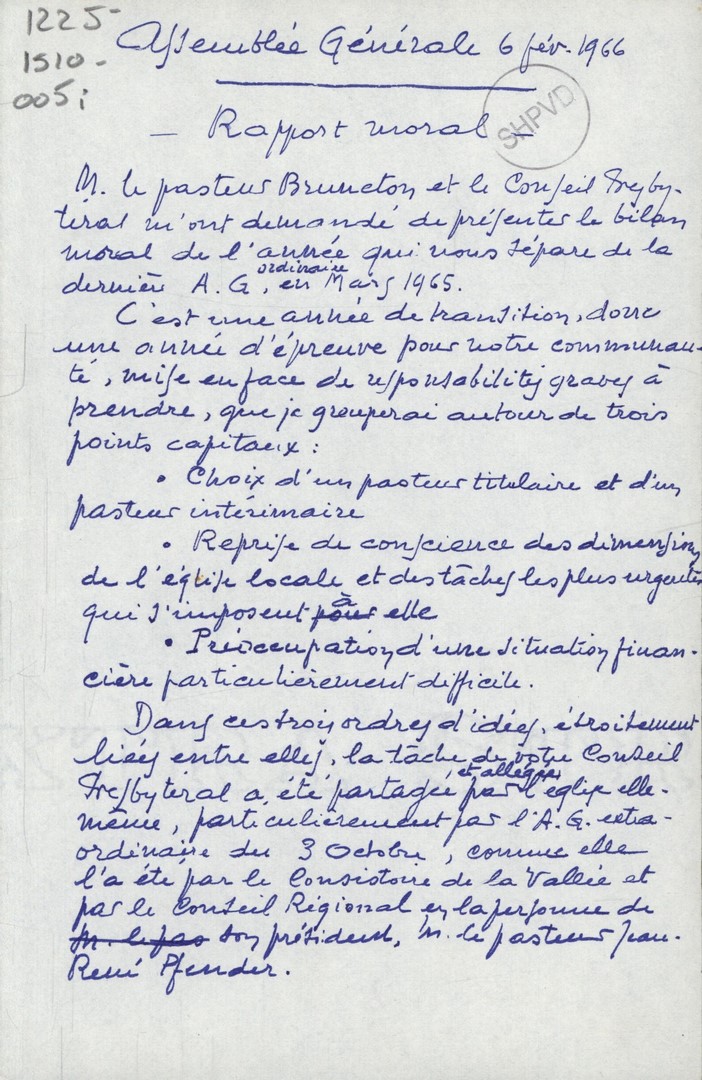 1225-
1510-
005i
Assemblée Générale 6 fév. 1966
SHPVD
- Rapport moral -
M. le pasteur Bruneton et le Conseil Presby-
téral m'ont demandé de présenter le bilan
moral de l'année qui nous sépare de la
dernière A.G. ordinaire, en Mars 1965.
C'est une année de transition, donc
une année d'épreuve pour notre communau-
té, mise en face de responsabilités graves à
prendre, que je grouperai autour de trois
points capitaux :
• Choix d'un pasteur titulaire et d'un
pasteur intérimaire
• Reprise de conscience des dimensions
de l'église locale et des tâches les plus urgentes
qui s'imposent pour à elle
• Préoccupation d'une situation finan-
cière particulièrement difficile.
Dans ces trois ordres d'idées, étroitement
liées entre elles, la tâche de votre Conseil
Presbytéral a été partagée et allégée par l'église elle-
même, particulièrement par l'A.G. extra-
ordinaire du 3 Octobre, comme elle
l'a été par le Consistoire de la Vallée et
par le Conseil Régional en la personne de
M. le pas son président, M. le pasteur Jean-
René Pfender.